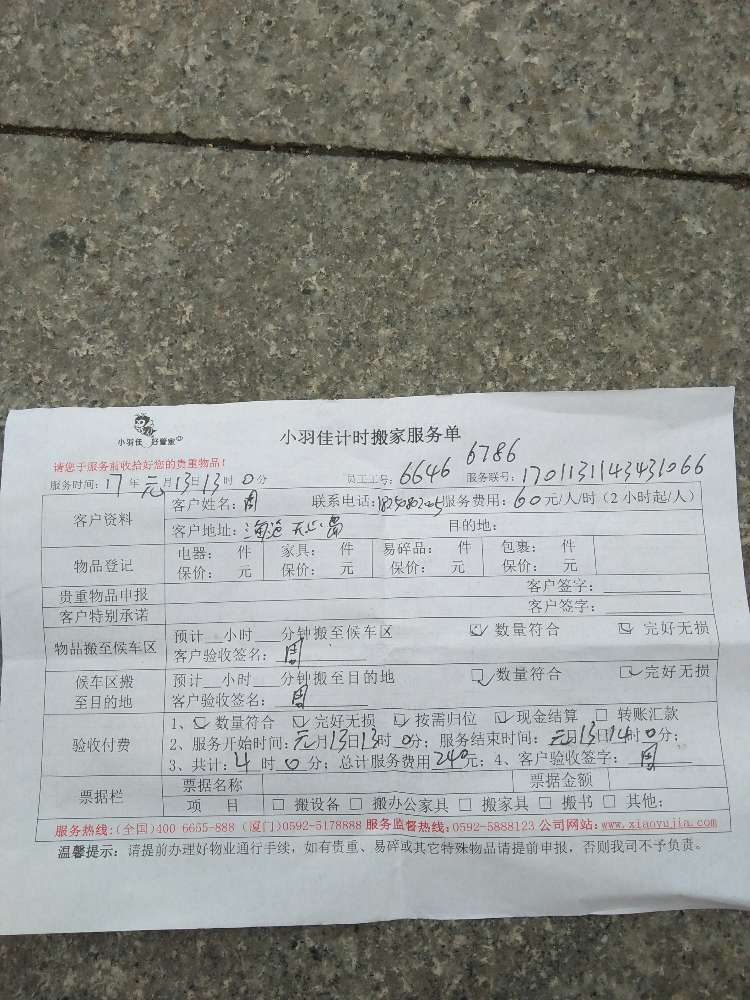 小羽佳 好管家
小羽佳计时搬家服务单
请您于服务前收拾好您的贵重物品!
6646 6786
服务时间:17年元月13日13时0分 员工工号: 服务联号:1701131143431066
客户资料
客户姓名:周 联系电话: 服务费用:60元/人/时(2小时起/人)
客户地址: 目的地:
物品登记
电器: 件 家具: 件 易碎品: 件 包裹: 件
保价: 元 保价: 元 保价: 元 保价: 元
贵重物品申报 客户签字:
客户特别承诺 客户签字:
物品搬至候车区
预计__小时__分钟搬至候车区 ☑ 数量符合 ☑ 完好无损
客户验收签名:周
候车区搬至目的地
预计__小时__分钟搬至目的地 ☑ 数量符合 ☑ 完好无损
客户验收签名:周
验收付费
1、☑ 数量符合 ☑ 完好无损 ☑ 按需归位 ☑ 现金结算 □ 转账汇款
2、服务开始时间:元月13日13时0分;服务结束时间:元月13日14时0分;
3、共计:4时0分;总计服务费用240元;4、客户验收签字:周
票据栏
票据名称 票据金额
项 目 □ 搬设备 □ 搬办公家具 □ 搬家具 □ 搬书 □ 其他:
服务热线:(全国)400 6655-888 (厦门)0592-5178888 服务监督热线:0592-5888123 公司网站:www.xiaoyujia.com
温馨提示:请提前办理好物业通行手续,如有贵重、易碎或其它特殊物品请提前申报,否则我司不予负责。